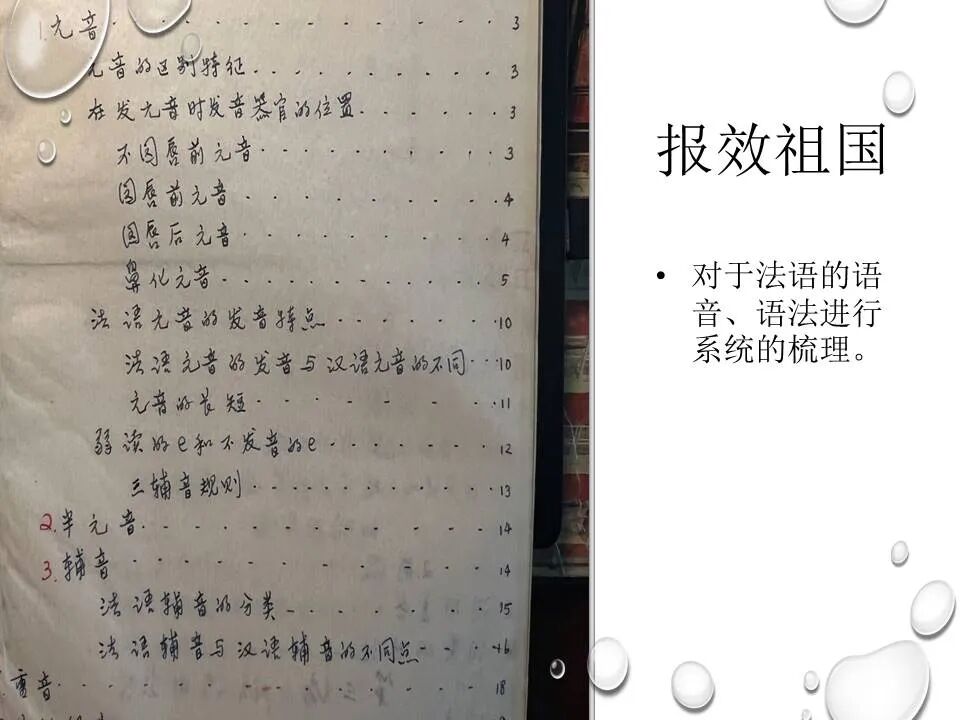 1.元音. . . . . . . . . . . 3
元音的区别特征. . . . . . . . . . 3
在发元音时发音器官的位置. . . . . . 3
不圆唇前元音. . . . . . . . . 3
圆唇前元音. . . . . . . . . . 4
圆唇后元音. . . . . . . . . . 4
鼻化元音. . . . . . . . . . 5
法语元音的发音特点. . . . . . . 10
法语元音的发音与汉语元音的不同. . . 10
元音的长短. . . . . . . . . 11
弱读的e和不发音的e. . . . . . . 12
三辅音规则. . . . . . . . . 13
2.半元音. . . . . . . . . . . . 14
3.辅音. . . . . . . . . . . . 14
法语辅音的分类. . . . . . . . 15
法语辅音与汉语辅音的不同点. . . 16
重音. . . . . . . . . . . . 18
报效祖国
• 对于法语的语
音、语法进行
系统的梳理。